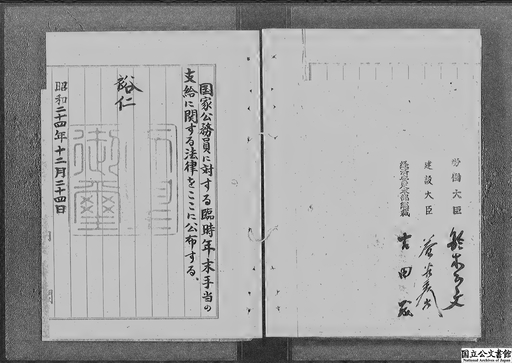 労働大臣 鈴木正文
建設大臣 益谷秀次
経済安定本部総裁 吉田茂
国家公務員に対する臨時年末手当の
支給に関する法律をここに公布する。
裕仁
昭和二十四年十二月二十四日
国立公文書館
National Archives of Japan